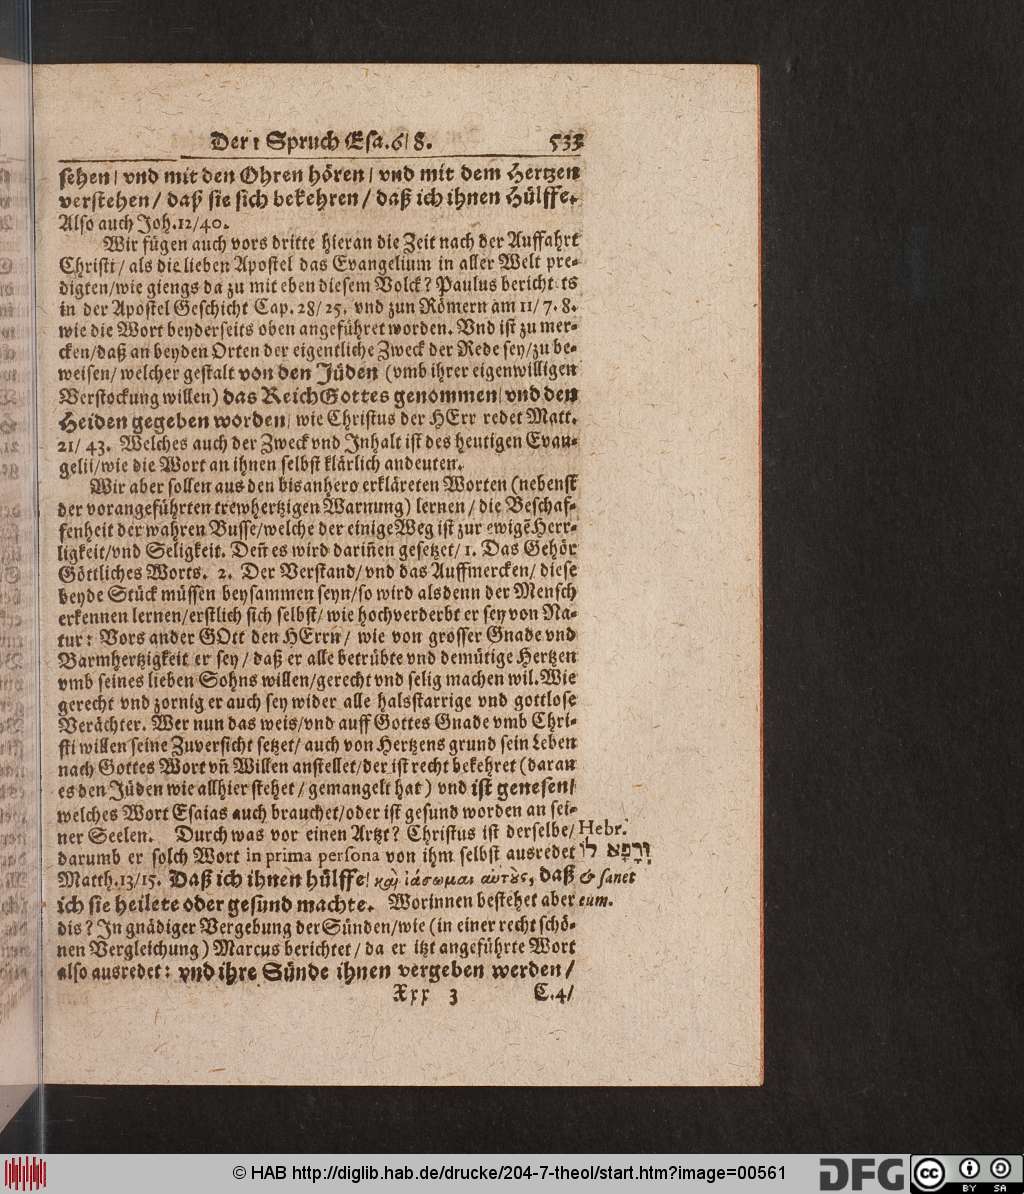 Der 1 Spruch Esa. 6/ 8. 533
sehen/ vnd mit den Ohren hören/ vnd mit dem Hertzen
verstehen/ daß sie sich bekehren/ daß ich ihnen Hülffe.
Also auch Joh. 12/40.
Wir fügen auch vors dritte hieran die Zeit nach der Auffahrt
Christi/ als die lieben Apostel das Evangelium in aller Welt pre-
digten/ wie giengs da zu mit eben diesem Volck? Paulus bericht ts
in der Apostel Geschicht Cap. 28/ 25. vnd zun Römern am 11/ 7. 8.
wie die Wort beyderseits oben angeführet worden. Vnd ist zu mer-
cken/ daß an beyden Orten der eigentliche Zweck der Rede sey/ zu be-
weisen/ welcher gestalt von den Jüden (vmb ihrer eigenwilligen
Verstockung willen) das Reich Gottes genommen/ vnd den
Heiden gegeben worden/ wie Christus der HErr redet Matt.
21/ 43. Welches auch der Zweck vnd Inhalt ist des heutigen Evan-
gelii/ wie die Wort an ihnen selbst klärlich andeuten.
Wir aber sollen aus den bisanhero erkläreten Worten (nebenst
der vorangeführten trewhertzigen Warnung) lernen/ die Beschaf-
fenheit der wahren Busse/ welche der einige Weg ist zur ewigē Herr-
ligkeit/ vnd Seligkeit. Deñ es wird dariñen gesetzet/ 1. Das Gehör
Göttliches Worts. 2. Der Verstand/ vnd das Auffmercken/ diese
beyde Stück müssen beysammen seyn/ so wird alsdenn der Mensch
erkennen lernen/ erstlich sich selbst/ wie hochverderbt er sey von Na-
tur: Vors ander GOtt den HErrn/ wie von grosser Gnade vnd
Barmhertzigkeit er sey/ daß er alle betrübte vnd demütige Hertzen
vmb seines lieben Sohns willen/ gerecht vnd selig machen wil. Wie
gerecht vnd zornig er auch sey wider alle halsstarrige vnd gottlose
Verächter. Wer nun das weis/ vnd auff Gottes Gnade vmb Chri-
sti willen seine Zuversicht setzet/ auch von Hertzens grund sein Leben
nach Gottes Wort vñ Willen anstellet/ der ist recht bekehret (daran
es den Jüden wie allhier stehet/ gemangelt hat) vnd ist genesen/
welches Wort Esaias auch brauchet/ oder ist gesund worden an sei-
ner Seelen. Durch was vor einen Artzt? Christus ist derselbe/ Hebr.
darumb er solch Wort in prima persona von ihm selbst ausredet וְרָפָא לוֹ
Matth. 13/15. Daß ich ihnen hülffe/ καὶ ἰάσωμαι αὐτοὺς, daß & sanet
ich sie heilete oder gesund machte. Worinnen bestehet aber eum.
dis? In gnädiger Vergebung der Sünden/ wie (in einer recht schö-
nen Vergleichung) Marcus berichtet/ da er itzt angeführte Wort
also ausredet: vnd ihre Sünde ihnen vergeben werden/
Xxx 3 C. 4/
© HAB http://diglib.hab.de/drucke/204-7-theol/start.htm?image=00561
DFG
cc BY SA